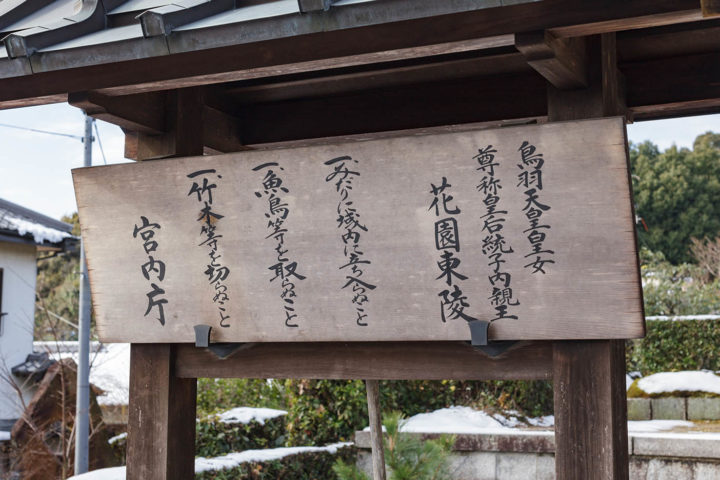 鳥羽天皇皇女
尊称皇后統子内親王
花園東陵
一、みだりに域内に立ち入らぬこと
一、魚鳥等を取らぬこと
一、竹木等を切らぬこと
宮内庁